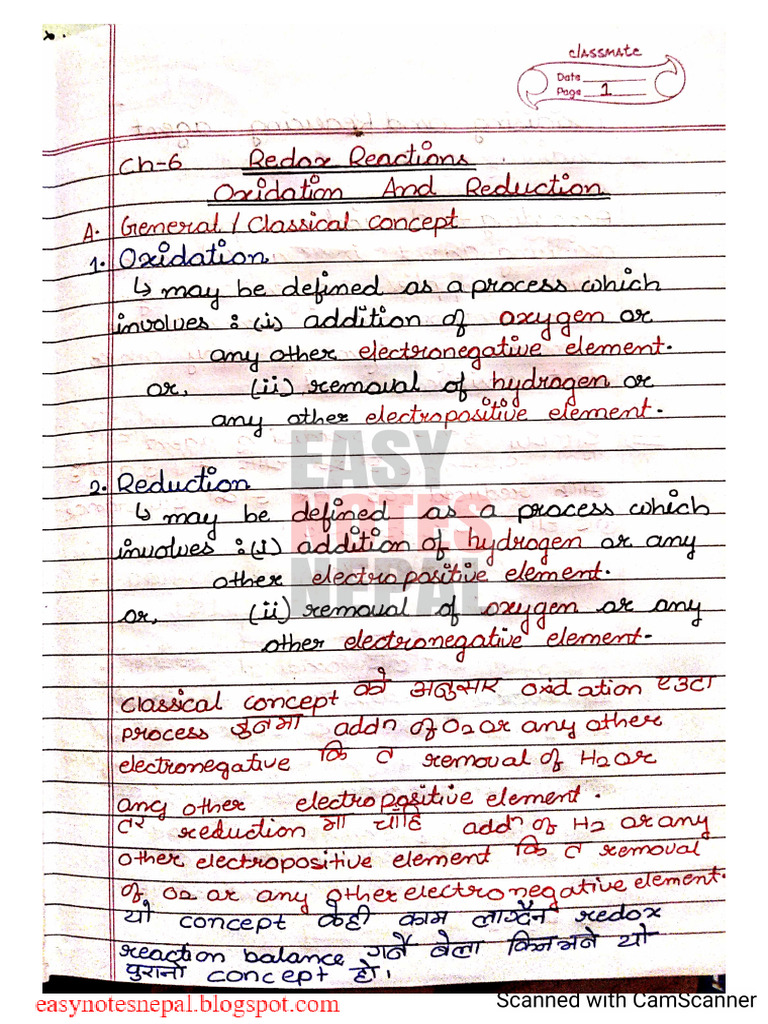 classmate
Date
Page 1
Ch-6 Redox Reactions
Oxidation And Reduction
A. General / Classical concept
1. Oxidation
↳ may be defined as a process which
involves : (i) addition of oxygen or
any other electronegative element.
or, (ii) removal of hydrogen or
any other electropositive element.
EASY
NOTES
NEPAL
2. Reduction
↳ may be defined as a process which
involves : (i) addition of hydrogen or any
other electropositive element.
or, (ii) removal of oxygen or any
other electronegative element.
classical concept को अनुसार oxidation एउटा
process हुनमा addn of O2 or any other
electronegative कि त removal of H2 or
any other electropositive element.
तर reduction मा चाँहि addn of H2 or any
other electropositive element कि त removal
of O2 or any other electronegative element.
यो concept केही काम लाग्दैन redox
reaction balance गर्ने बेला किनभने यो
पुरानो concept हो।
easynotesnepal.blogspot.com
Scanned with CamScanner